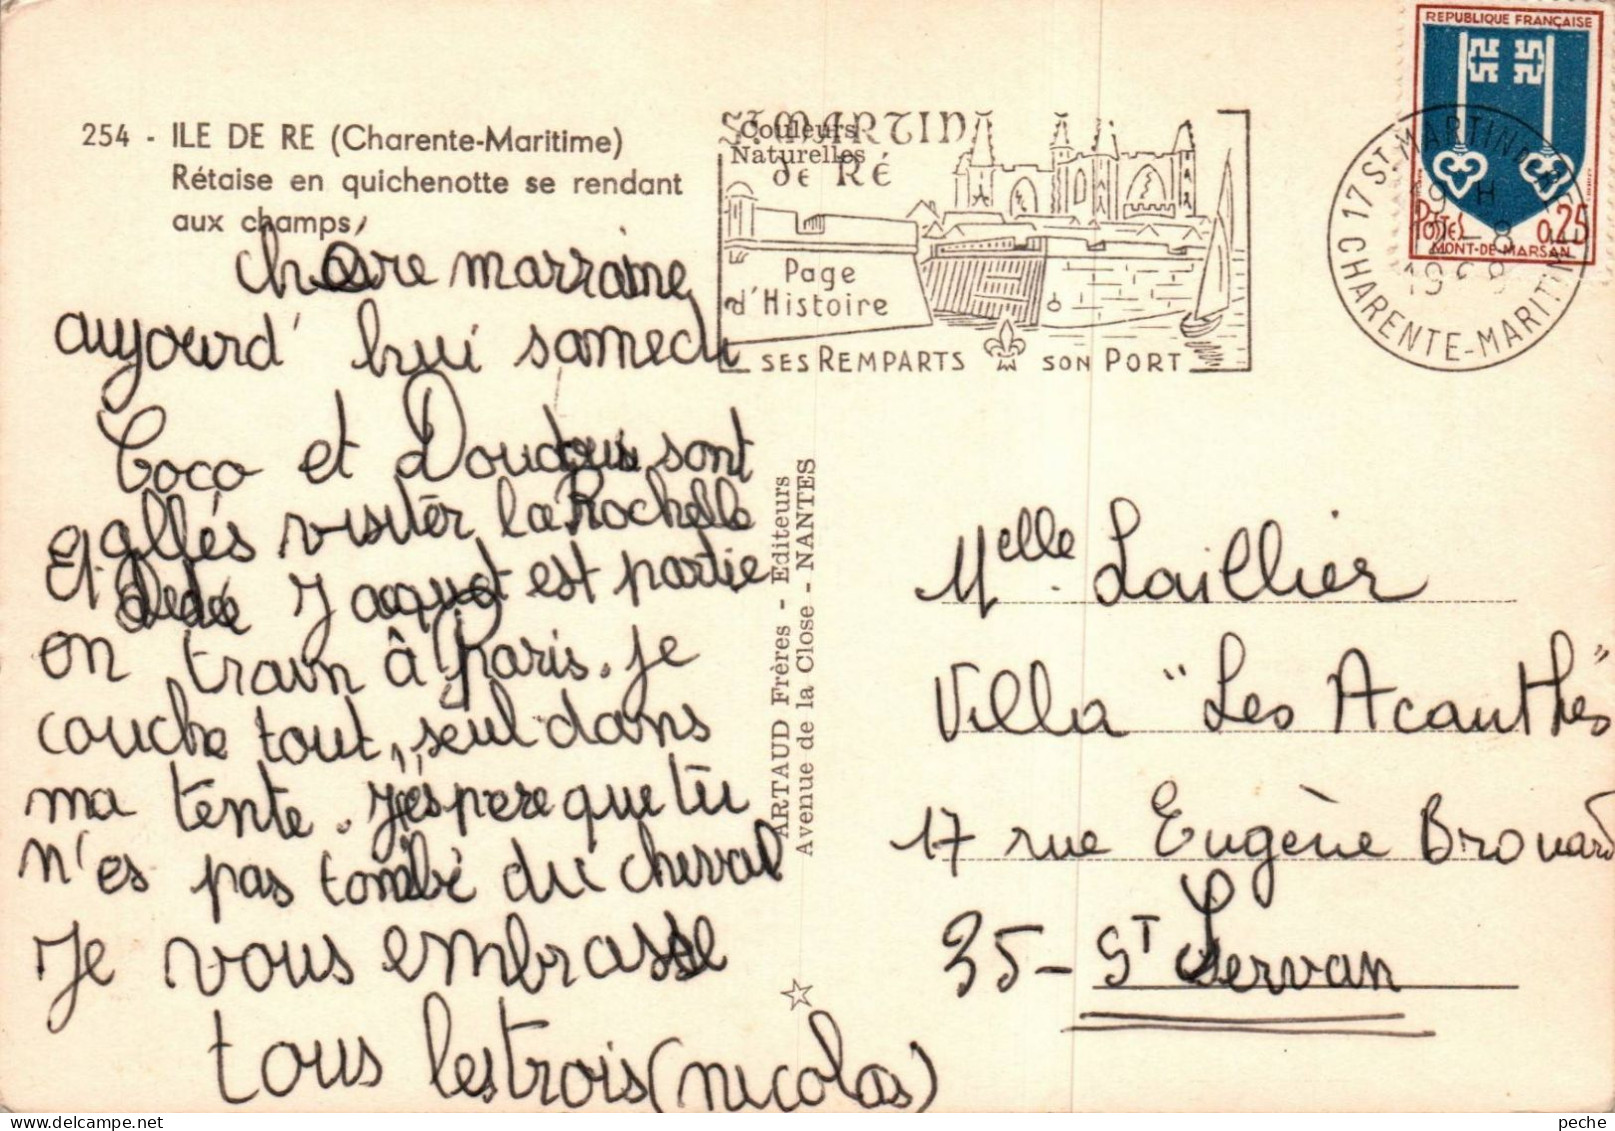 254 - ILE DE RE (Charente-Maritime)
Rétaise en quichenotte se rendant
aux champs
chère marraine
aujourd'hui samedi
Coco et Doudou sont
allés visiter la Rochelle
Et Dédé Jaquot est partie
en train â Paris. je
couche tout seul dans
ma tente. J'éspere que tu
n'es pas tombé du cheval
Je vous embrasse
tous les trois (nicolas)
Couleurs
Naturelles
ARTAUD Frères - Editeurs
Avenue de la Close - NANTES
St MARTIN
de RÉ
Page
d'Histoire
SES REMPARTS SON PORT
17 ST MARTIN DE RÉ
19 H
-8
1968
CHARENTE-MARITIME
REPUBLIQUE FRANÇAISE
Postes
0,25
MONT-DE-MARSAN
Melle Laillier
Villa "Les Acanthes"
17 rue Eugène Brouard
35 - St Servan
peche